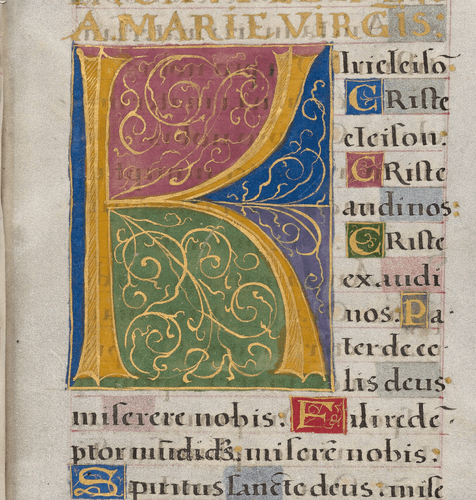 A MARIE VIRGIS:
KIrieleisō
Criste
eleison.
Criste
audi nos
Criste
ex.audi
nos. Pa-
ter de ce
lis deus
miserere nobis: Fili redē-
ptor mūdi miserē nobis:
Spiritus sancte deus: mise